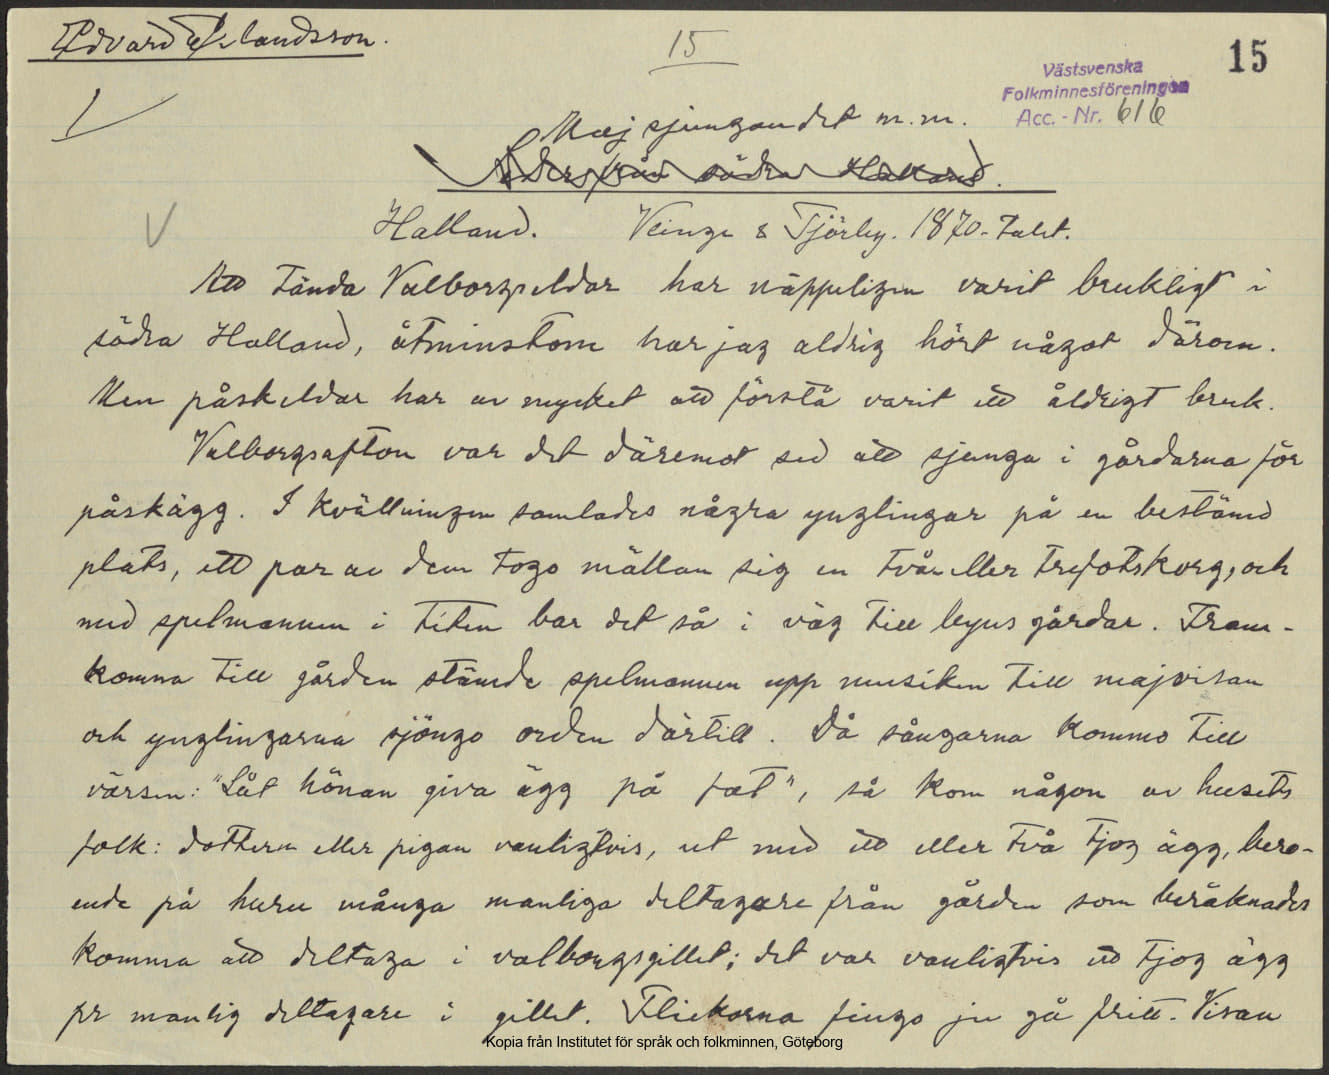 Edvard Erlandsson.
15
15
Västsvenska
Folkminnesföreningen
Acc. - Nr. 616
1
Majsjungandet m.m.
Seder från södra Halland.
Halland. Veinge & Tjörby. 1870-Talet.
Att tända Valborgseldar har näppeligen varit brukligt i
södra Halland, åtminstone har jag aldrig hört något därom.
Men påskeldar har av mycket att förstå varit ett åldrigt bruk.
Valborgsafton var det däremot sed att sjunga i gårdarna för
påskägg. I kvällningen samlades några ynglingar på en bestämd
plats, ett par av dem togo mällan sig en två- eller trefotskorg, och
med spelmannen i téten bar det så i väg till byns gårdar. Fram-
komna till gården stämde spelmannen upp musiken till majvisan
och ynglingarna sjöngo orden därtill. Då sångarna kommo till
värsen: "Låt hönan giva ägg på fat", så kom någon av husets
folk: dottern eller pigan vanligtvis, ut med ett eller två tjog ägg, bero-
ende på huru många manliga deltagare från gården som beräknades
komma att deltaga i valborgsgillet; det var vanligtvis ett tjog ägg
pr manlig deltagare i gillet. Flickorna fingo ju gå fritt. Visan
Kopia från Institutet för språk och folkminnen, Göteborg